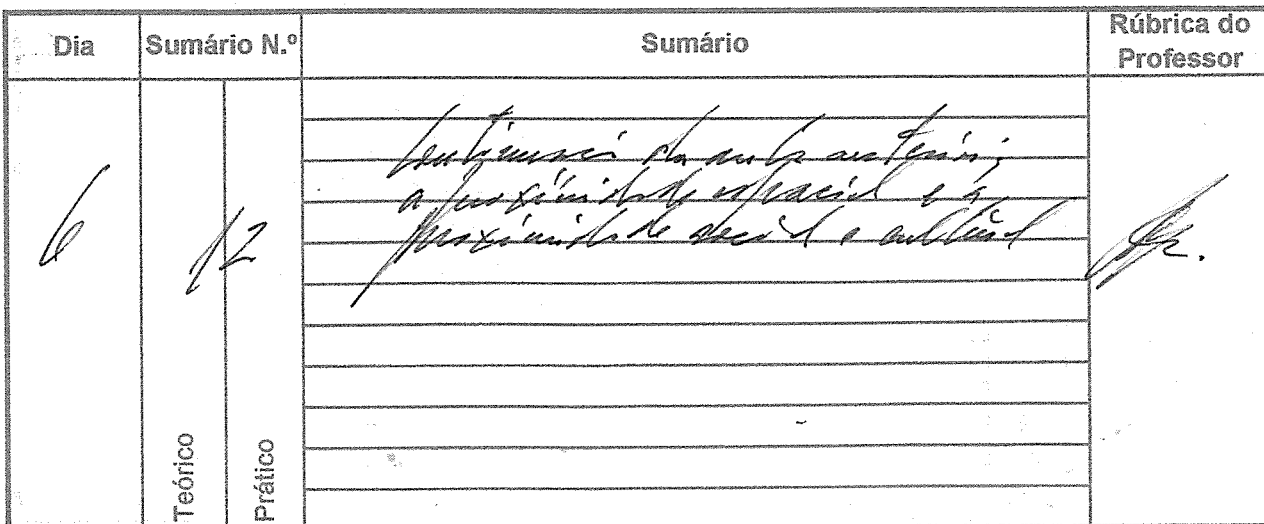 Dia Sumário N.º Sumário Rúbrica do Professor
6 12
Continuação da aula anterior;
a proximidade espacial e a
proximidade social e cultural
Teórico Prático